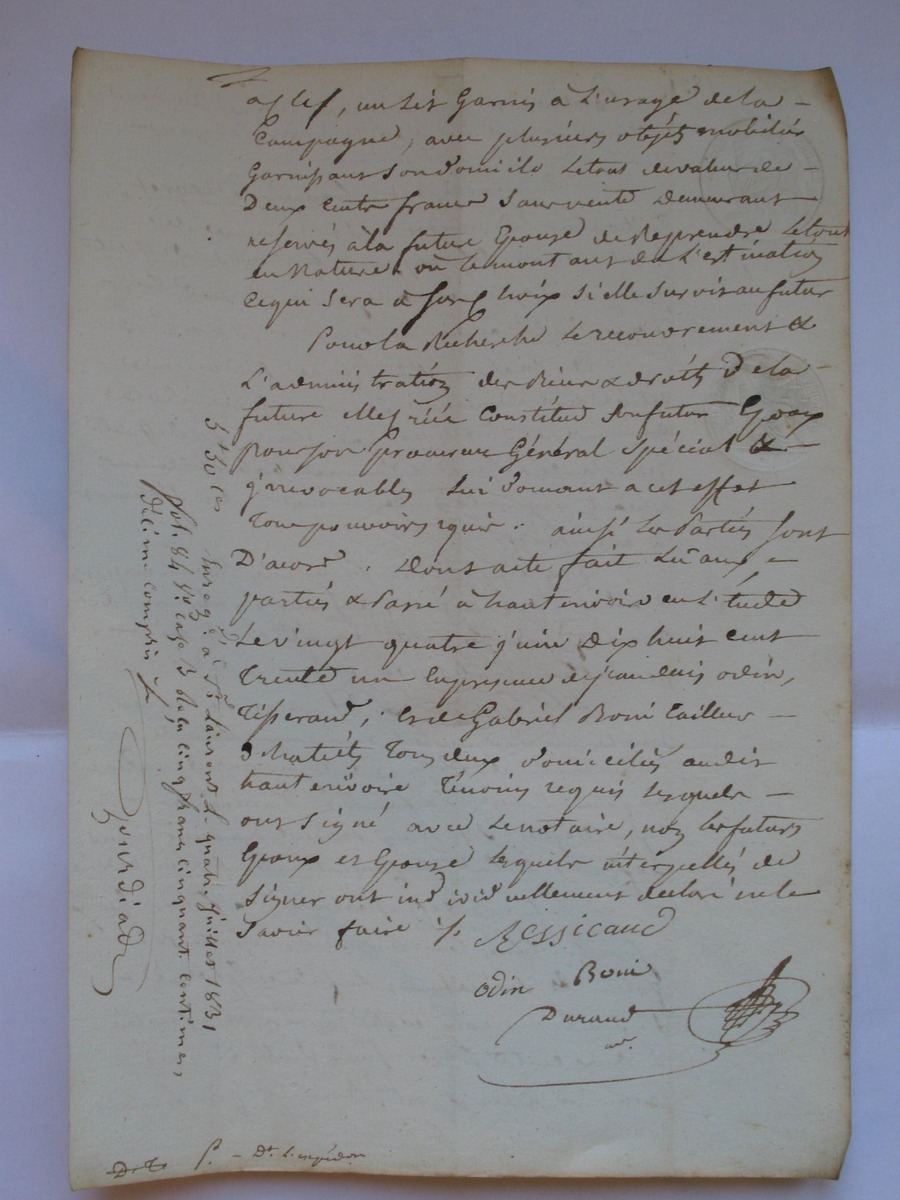 a clef, un lit Garni à L'usage de la
Campagne, avec plusieurs objets mobiliers
Garnissant Son domicile Letout devaleur de
Deux Cents francs Savoir demeurant
reservés àla future Epouse de Reprendre Letout
en Nature ou lemontant de L'estimation
Cequi Sera à Son Choix Si elle Survit aufutur
Pour la Recherche Le recouvrement &
L'administration des Biens & droits de la
future elle Constitue Son futur Epoux
pour Son procureur Général Spécial &
irrevocable, Lui donnant a cet effet
Tous pouvoirs requis. ainsi les Parties Sont
D'acord. Dont acte fait Lu aux
parties & Passé à hauterivoire en L'étude
Le vingt quatre juin dix huit cent
Trente un En presence de jean Odin,
Tisserand, et de Gabriel Boni tailleur
D'habits Tous deux domiciliés audit
hauterivoire Témoins requis lesquels
ont Signé avec Le notaire, non les futurs
Epoux et Epouse lesquels interpellés de
Signer ont individuellement declaré ne le
Savoir faire /.
Ressicaud
odin Boni
Durand
Enreg.é à St. Laurent Le quatre Juillet 1831
fol. 84 v.o case 3 Reçu cinq francs cinquante centimes,
décime compris